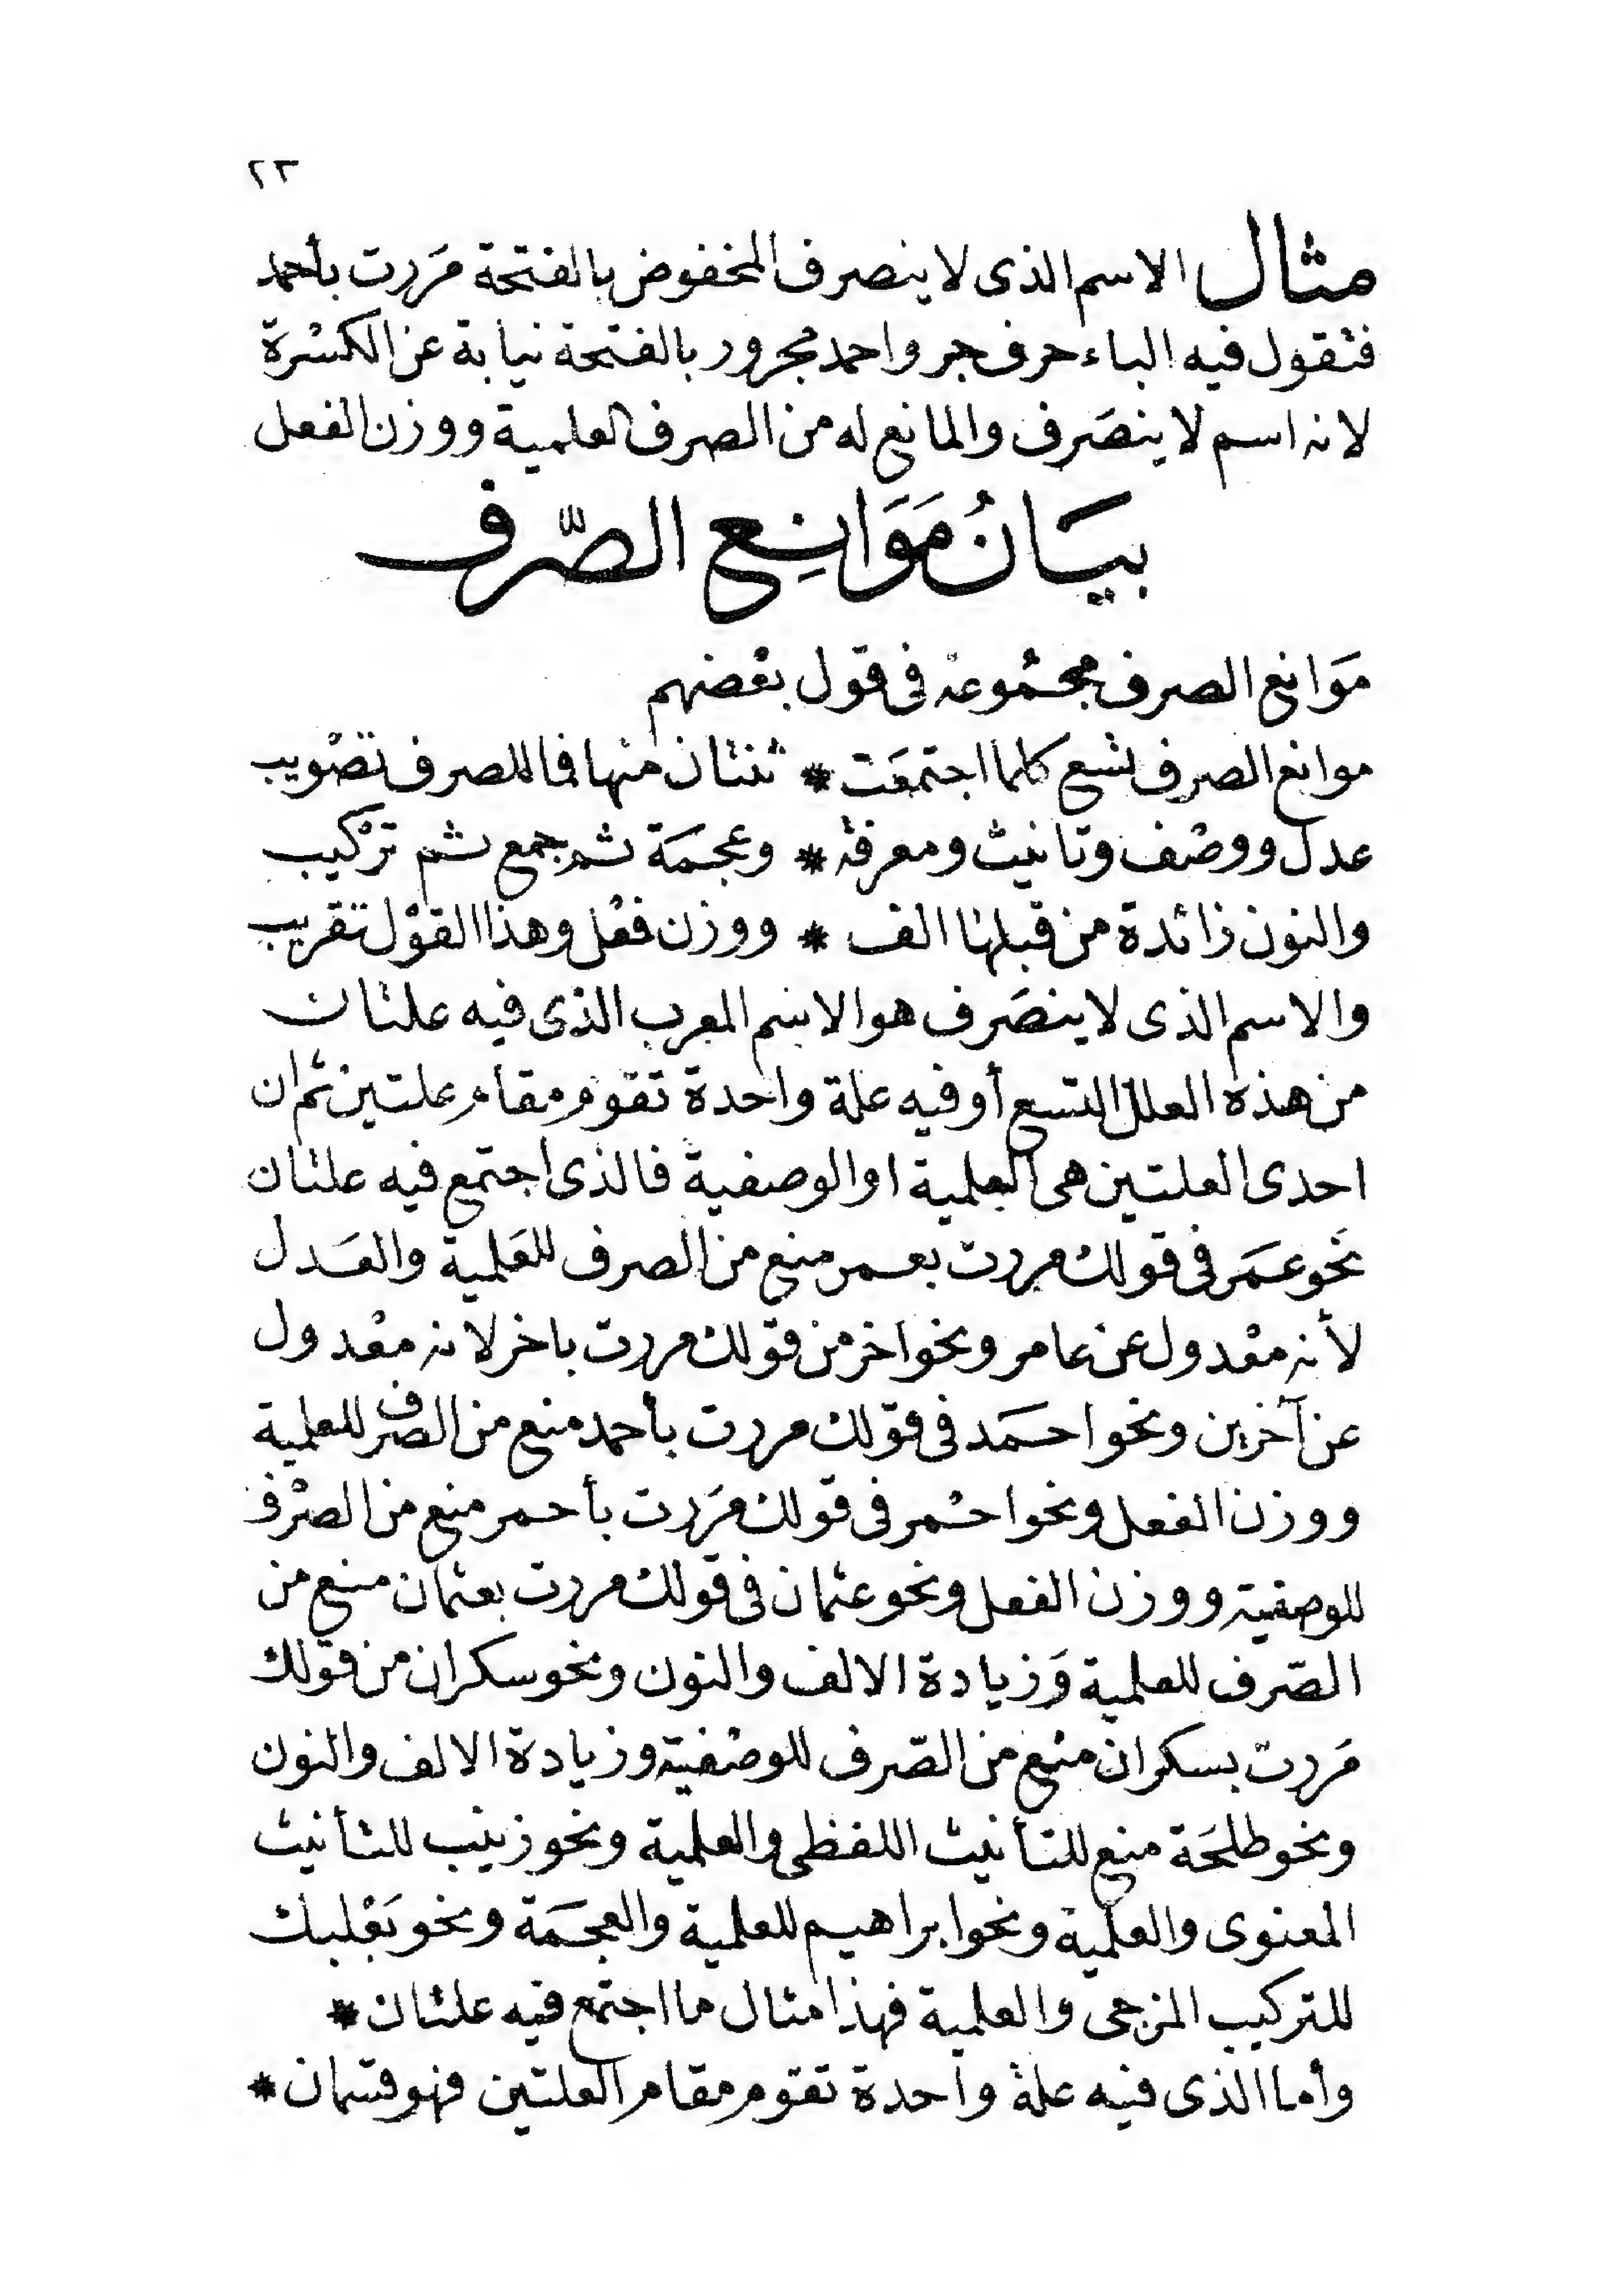 ٢٣
مثال الاسم الذى لا ينصرف المخفوض بالفتحة مَررت بأحمد
فتقول فيه الباء حرف جر واحمد مجرور بالفتحة نيابة عن الكسْرة
لانه اسم لا ينصَرف والمانع له من الصرف العلمية ووزن الفعل
بيَانُ مَوَانِع الصّرف
مَوانع الصرف مجمُوعة فى قول بعْضهم
موانع الصرف تسع كلما اجتمعَت * ثنتان منها فما للصرف تصْويب
عدل ووصْف وتانيث ومعرفة * وعجمَة ثم جمع ثم ترْكيب
والنون زائدة من قبلها الف * ووزن فعْل وهذا القوْل تقريب
والاسم الذى لا ينصَرف هو الاسم المعرب الذى فيه علتان
من هذه العلل التسع أو فيه علة واحدة تقوم مقام علتين ثم ان
احدى العلتين هى العلمية او الوصفية فالذى اجتمع فيه علتان
نَحو عمَر فى قولك مررت بعمر منع من الصرف للعَلمية والعَدل
لأنه معْدول عن عامر ونحو اخر من قولك مررت باخر لانه معْدول
عن آخرين ونحو احمَد فى قولك مررت بأحمد منع من الصرف للعلمية
ووزن الفعل ونحو احْمر فى قولك مَررت بأحمر منع من الصرْف
للوصفية ووزن الفعل ونحو عثمان فى قولك مررت بعثمان منع من
الصّرف للعلمية وَزيادة الالف والنون ونحو سكران من قولك
مَررت بسكران منع من الصّرف للوصْفية وزيادة الالف والنون
ونحو طلحَة منع للتأنيث اللفظى والعلمية ونحو زينب للتأنيث
المعنوى والعلمية ونحو ابراهيم للعلمية والعجمَة ونحو بَعْلبك
للتركيب المزجى والعلمية فهذا مثال ما اجتمع فيه علتان *
وأما الذى فيه علة واحدة تقوم مقام العلتين فهو قسمان *